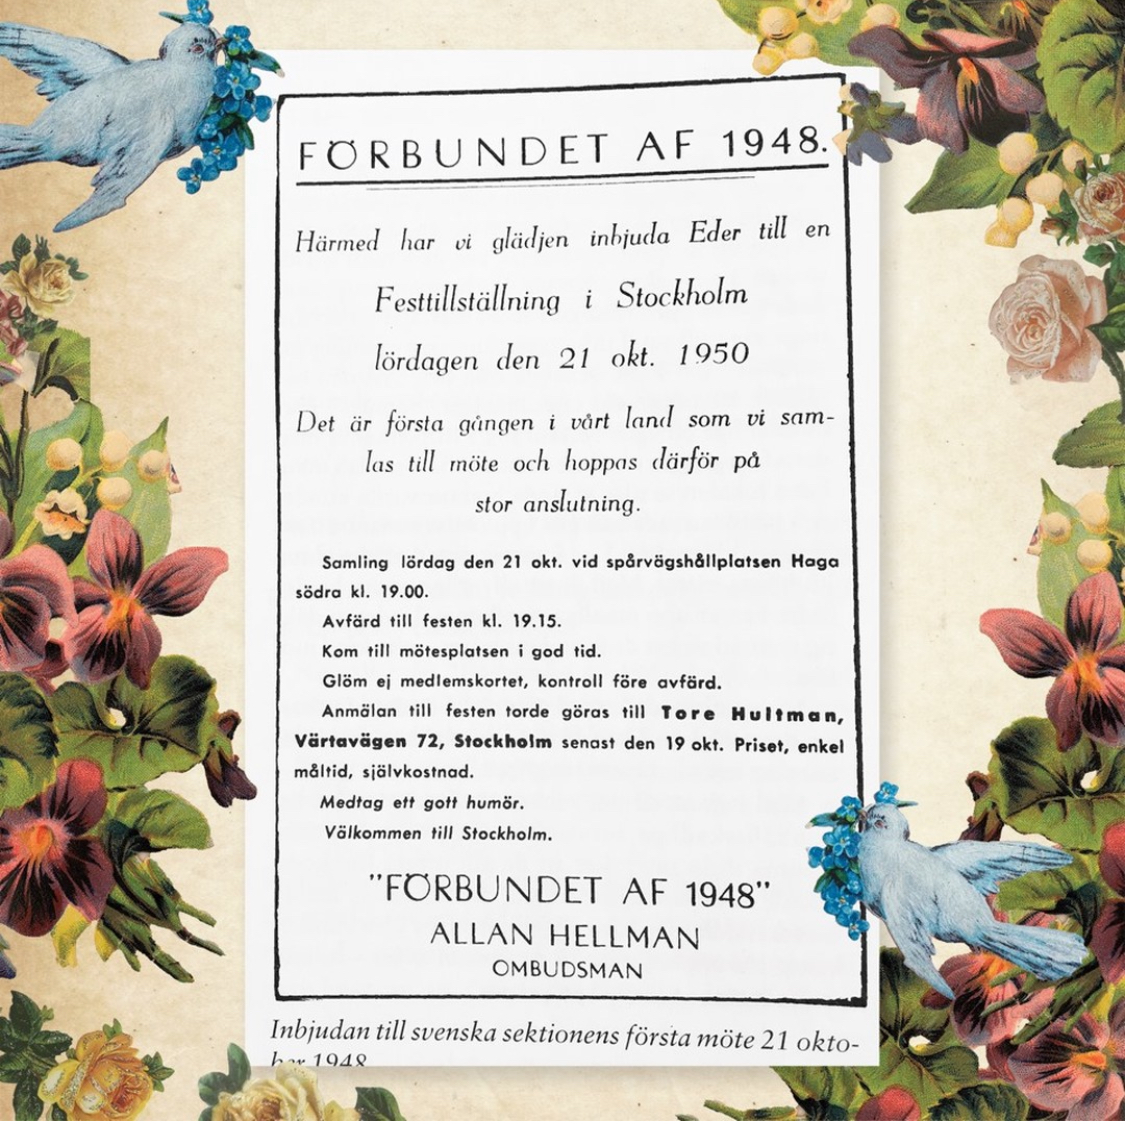 FÖRBUNDET AF 1948.
Härmed har vi glädjen inbjuda Eder till en
Festtillställning i Stockholm
lördagen den 21 okt. 1950
Det är första gången i vårt land som vi sam-
las till möte och hoppas därför på
stor anslutning.
Samling lördag den 21 okt. vid spårvägshållplatsen Haga
södra kl. 19.00.
Avfärd till festen kl. 19.15.
Kom till mötesplatsen i god tid.
Glöm ej medlemskortet, kontroll före avfärd.
Anmälan till festen torde göras till Tore Hultman,
Värtavägen 72, Stockholm senast den 19 okt. Priset, enkel
måltid, självkostnad.
Medtag ett gott humör.
Välkommen till Stockholm.
"FÖRBUNDET AF 1948"
ALLAN HELLMAN
OMBUDSMAN
Inbjudan till svenska sektionens första möte 21 okto-
ber 1948